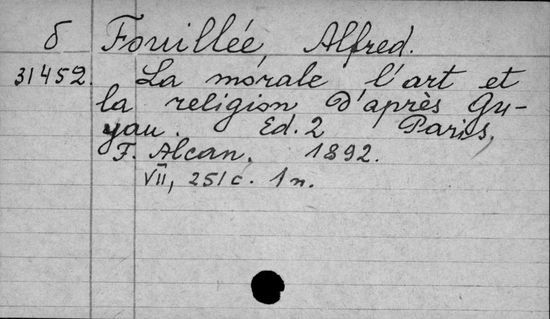 б Fouillée, Alfred.
31452. La morale l'art et
la religion d'après Gu-
yau. Ed. 2 Paris,
F. Alcan. 1892.
VII, 251 c. 1 п.